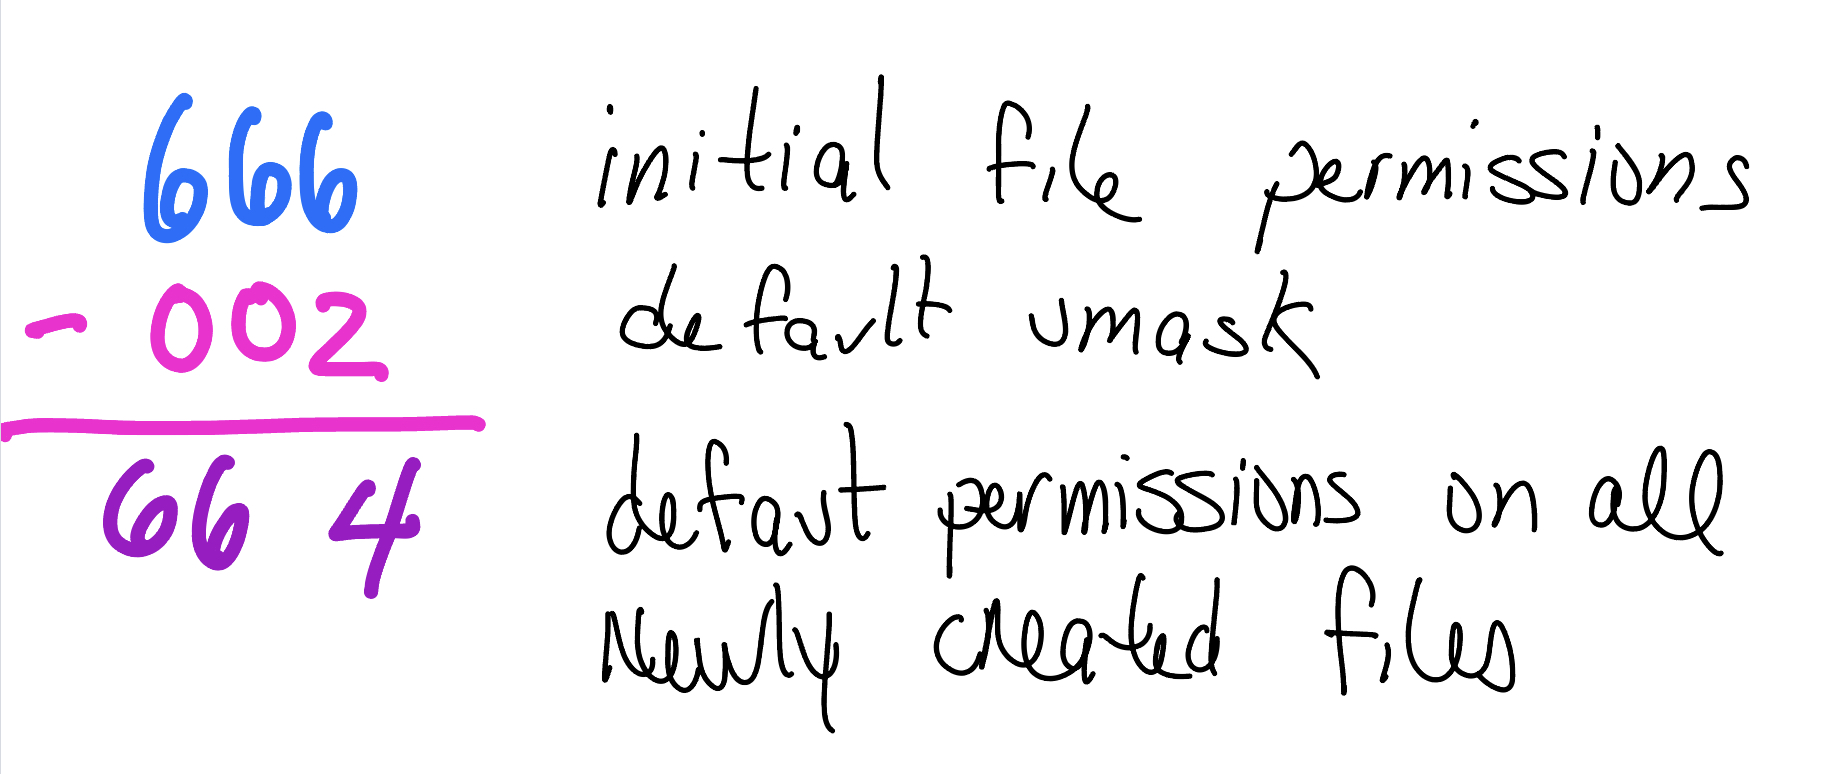 666 initial file permissions
- 002 default umask
664 defaut permissions on all
newly created files